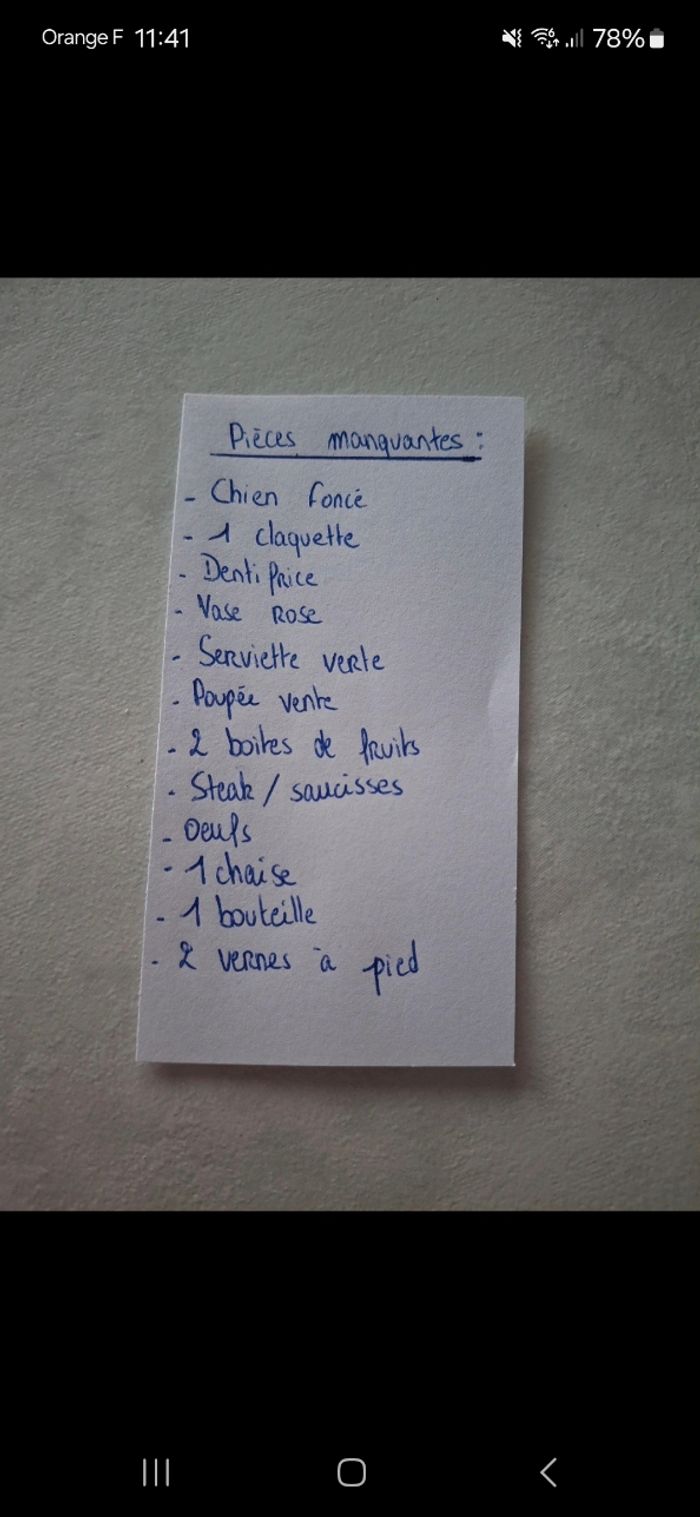 Orange F 11:41 78%
Pièces manquantes :
- Chien foncé
- 1 claquette
- Dentifrice
- Vase Rose
- Serviette verte
- Poupée verte
- 2 boites de fruits
- Steak / saucisses
- Oeufs
- 1 chaise
- 1 bouteille
- 2 verres à pied